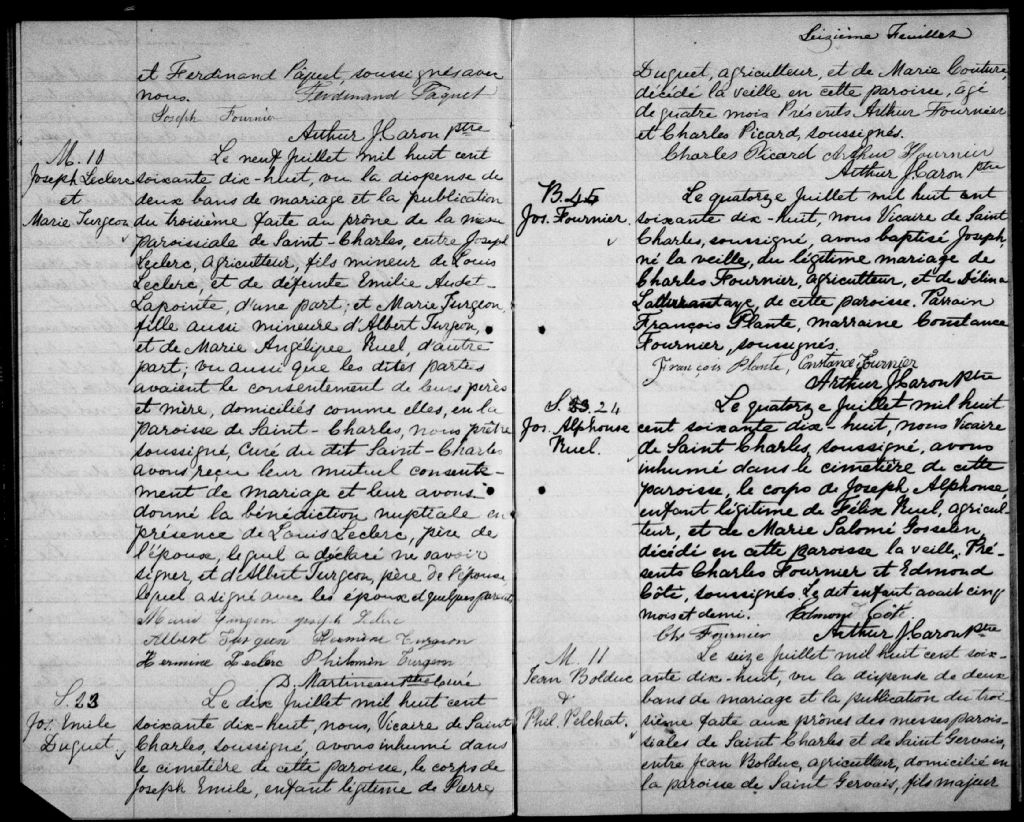 et Ferdinand Pâquet, soussignés avec
nous. Ferdinand Paquet
Joseph Fournier
Arthur J. Caron ptre
M. 10
Joseph Leclerc
et
Marie Turgeon
Le neuf Juillet mil huit cent
soixante dix-huit, vu la dispense de
deux bans de mariage et la publication
du troisième faite au prône de la messe
paroissiale de Saint-Charles, entre Joseph
Leclerc, agriculteur, fils mineur de Louis
Leclerc, et de défunte Emilie Audet-
Lapointe, d'une part; et Marie Turgeon,
fille aussi mineure d'Albert Turgeon,
et de Marie Angélique Ruel, d'autre
part; vu aussi que les dites parties
avaient le consentement de leurs pères
et mère, domiciliés comme elles, en la
paroisse de Saint-Charles, nous prêtre
soussigné, Curé du dit Saint-Charles
avons reçu leur mutuel consente-
ment de mariage et leur avons
donné la bénédiction nuptiale en
présence de Louis Leclerc, père de
l'époux, lequel a déclaré ne savoir
signer, et d'Albert Turgeon, père de l'épouse,
lequel a signé avec les époux et quelques parents.
Marie Turgeon Joseph Leclerc
Albert Turgeon Turgeon
Hermine Leclerc Philomin Turgeon
D. Martineau ptre curé
S. 23
Jos. Emile
Duquet
Le dix Juillet mil huit cent
soixante dix-huit, nous, Vicaire de Saint
Charles, soussigné, avons inhumé dans
le cimetière de cette paroisse, le corps de
Joseph Emile, enfant légitime de Pierre
Seizième Feuillet
Duquet, agriculteur, et de Marie Couture,
décédé la veille en cette paroisse, agé
de quatre mois Présents Arthur Fournier
et Charles Picard, soussignés.
Charles Picard Arthur Fournier
Arthur J. Caron ptre
B. 45
Jos. Fournier.
Le quatorze Juillet mil huit cent
soixante dix-huit, nous Vicaire de Saint
Charles, soussigné, avons baptisé Joseph,
né la veille, du légitime mariage de
Charles Fournier, agriculteur, et de Délina
de cette paroisse. Parrain
François Plante, marraine Constance
Fournier, soussignés.
François Plante, Constance Fournier
Arthur J. Caron ptre
S. 24
Jos. Alphonse
Ruel.
Le quatorze Juillet mil huit
cent soixante dix-huit, nous Vicaire
de Saint Charles, soussigné, avons
inhumé dans le cimetière de cette
paroisse, le corps de Joseph Alphonse,
enfant légitime de Félix Ruel, agricul-
teur, et de Marie Salomé Gosselin
décédé en cette paroisse la veille. Pré-
sents Charles Fournier et Edmond
Côté, soussignés. Le dit enfant avait cinq
mois et demi. Edmond Côté
Chs Fournier Arthur J. Caron ptre
M. 11
Jean Bolduc
&
Phil. Pelchat.
Le seize Juillet mil huit cent soix-
ante dix-huit, vu la dispense de deux
bans de mariage et la publication du troi-
sième faite aux prônes des messes parois-
siales de Saint Charles et de Saint Gervais,
entre Jean Bolduc, agriculteur, domicilié en
la paroisse de Saint Gervais, fils majeur